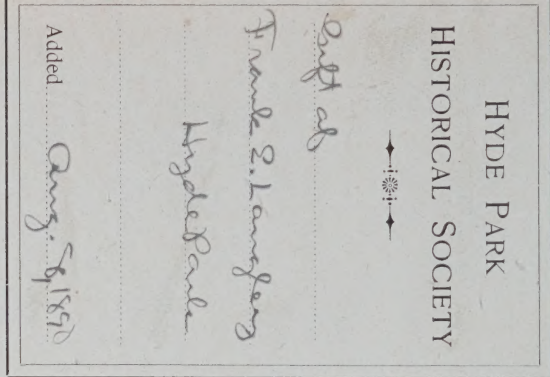 HYDE PARK
HISTORICAL SOCIETY
Gift of
Frank E. Langley
Hyde Park
Added Aug. 8, 1890